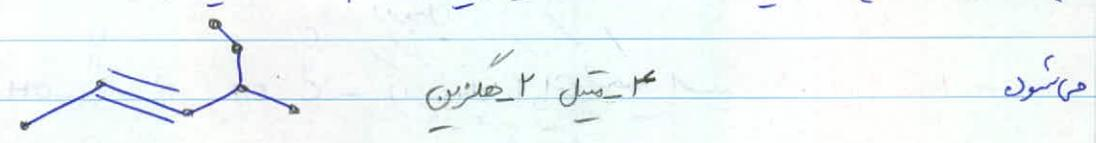 می‌شود ۴ـ متیل ۲ـ هگزین